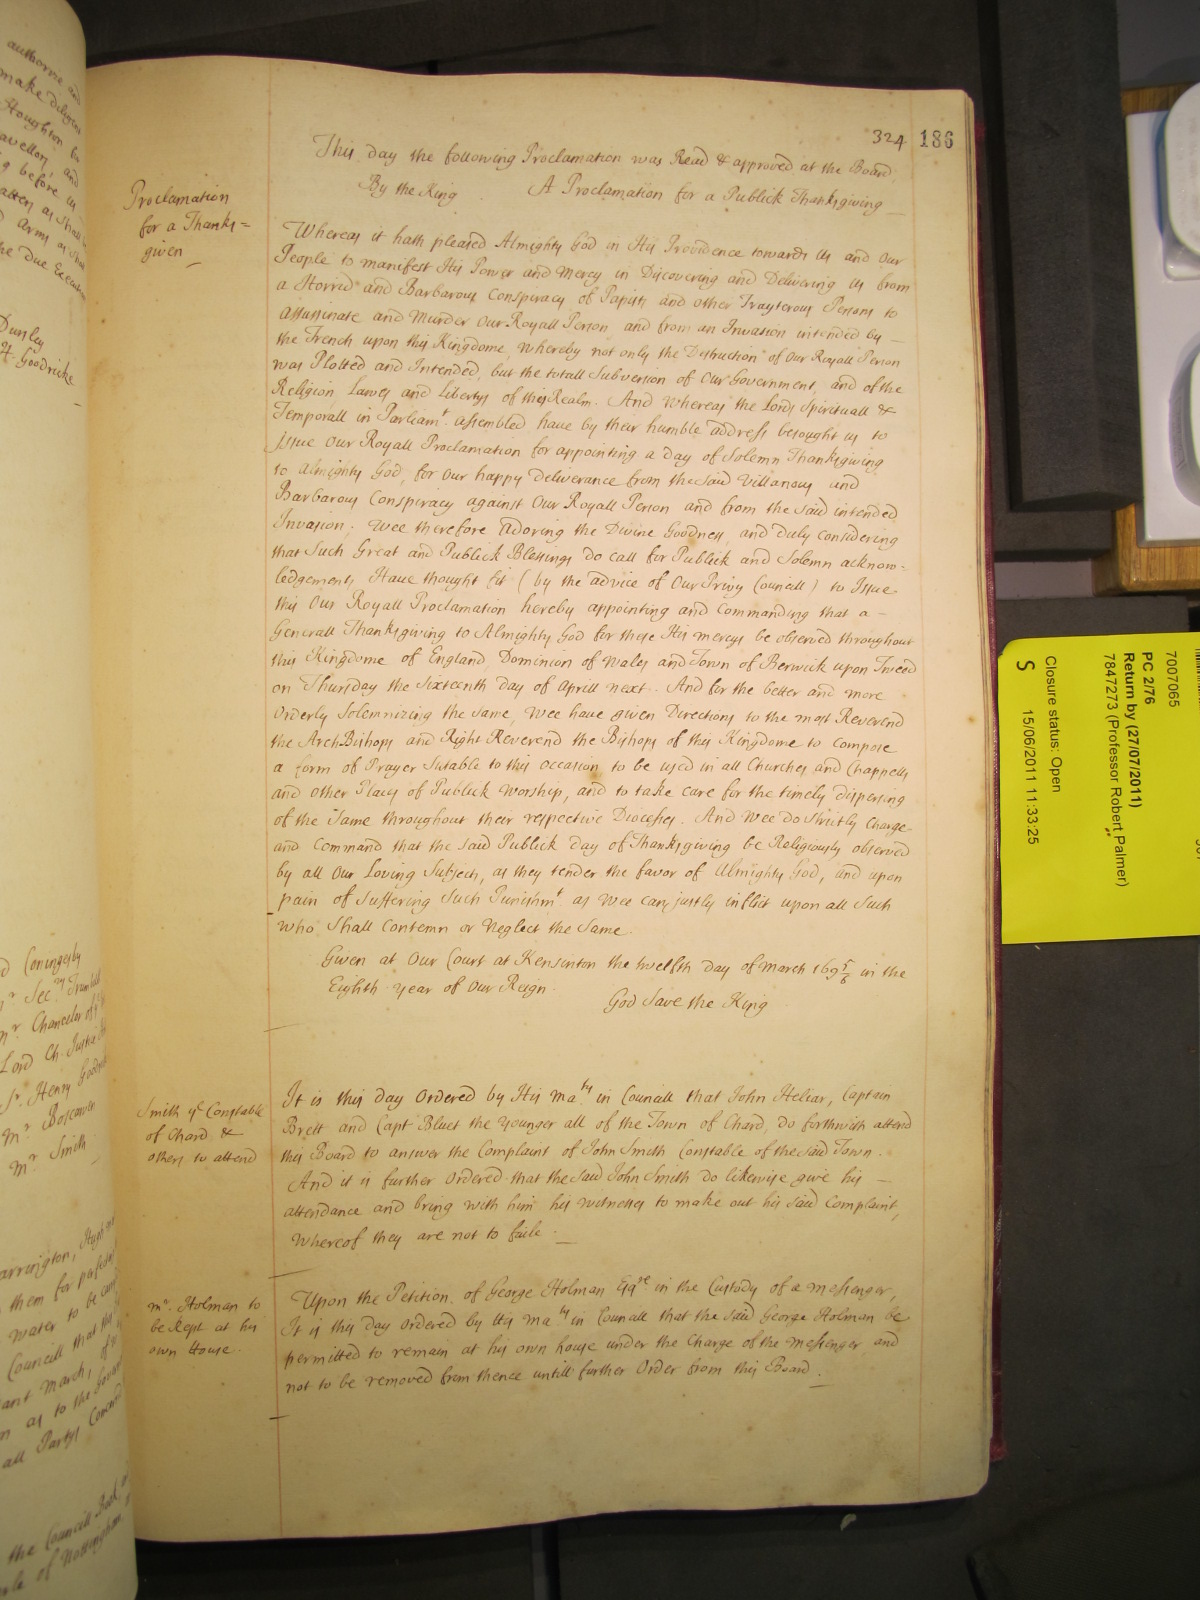 324 186
This day the following Proclamation was Read & approved at the Board
By the King A Proclamation for a Publick Thanksgiving
Proclamation
for a Thanks=
given
Whereas it hath pleased Almighty God in His Providence towards Us and Our
People to manifest His Power and Mercy in Discovering and Delivering us from
a Horrid and Barbarous Conspiracy of Papists and other Trayterous Persons to
Assassinate and Murder Our Royall Person and from an Invasion intended by
the French upon this Kingdome, whereby not only the Destruction of Our Royall Person
was Plotted and Intended, but the totall Subversion of Our Government, and of the
Religion Lawes and Libertys of this Realm. And Whereas the Lords Spirituall &
Temporall in Parliamt. assembled have by their humble address besought us to
Issue Our Royall Proclamation for appointing a day of Solemn Thanksgiving
to Almighty God, for our happy deliverance from the said Villanous and
Barbarous Conspiracy against Our Royall Person and from the Said intended
Invasion. Wee therefore Adoring the Divine Goodness, and duly considering
that Such Great and Publick Blessings do call for Publick and Solemn acknow=
ledgements, Have thought fit (by the advice of Our Privy Councill) to Issue
this Our Royall Proclamation hereby appointing and Commanding that a
Generall Thanksgiving to Almighty God for these His mercys be observed throughout
this Kingdome of England, Dominion of Wales and Town of Berwick upon Tweed
on Thursday the Sixteenth day of Aprill next. And for the better and more
Orderly Solemnizing the same, Wee have given Directions to the most Reverend
the ArchBishops and Right Reverend the Bishops of this Kingdome to compose
a form of Prayer Sutable to this occasion to be used in all Churches and Chappells
and other Places of Publick Worship, and to take care for the timely dispersing
of the Same throughout their respective Diocesses. And Wee do Strictly Charge
and Command that the said Publick day of Thanksgiving be Religiously observed
by all Our Loving Subjects, as they tender the favor of Almighty God, and upon
pain of suffering Such Punishmt. as Wee can justly inflict upon all Such
who Shall Contemn or Neglect the Same
Given at Our Court at Kensinton the twelfth day of March 169 5/6 in the
Eighth Year of Our Reign.
God Save the King
Smith ye Constable
of Chard &
others to attend
It is this day Ordered by His Maty in Councill that John Heliar, Captain
Brett and Capt Bluet the Younger all of the Town of Chard, do forthwith attend
this Board to answer the Complaint of John Smith Constable of the said Town.
And it is further Ordered that the said John Smith do likewise give his
attendance and bring with him his witnesses to make out his said Complaint,
Whereof they are not to faile.
mr. Holman to
be Kept at his
own House.
Upon the Petition of George Holman Esqre in the Custody of a Messenger,
It is this day Ordered by His Maty in Councill that the said George Holman be
permitted to remain at his own house under the Charge of the Messenger, and
not to be removed from thence untill further Order from this Board.
authorise and
make diligent
Houghton
before
Arms
the due Execution
Dursley
H. Goodricke
Coningesby
Mr Secry Trumbull
Mr Chancellor of
Lord Ch. Justice
Sr. Henry Goodricke
Mr Boscawen
Mr Smith
them for
water to be
Councill that the
March,
as to the
all Partys Concerned
the Councill
of Nottingham
7007065
PC 2/76
Return by (27/07/2011)
7847273 (Professor Robert Palmer)
Closure status: Open
15/06/2011 11:33:25
S